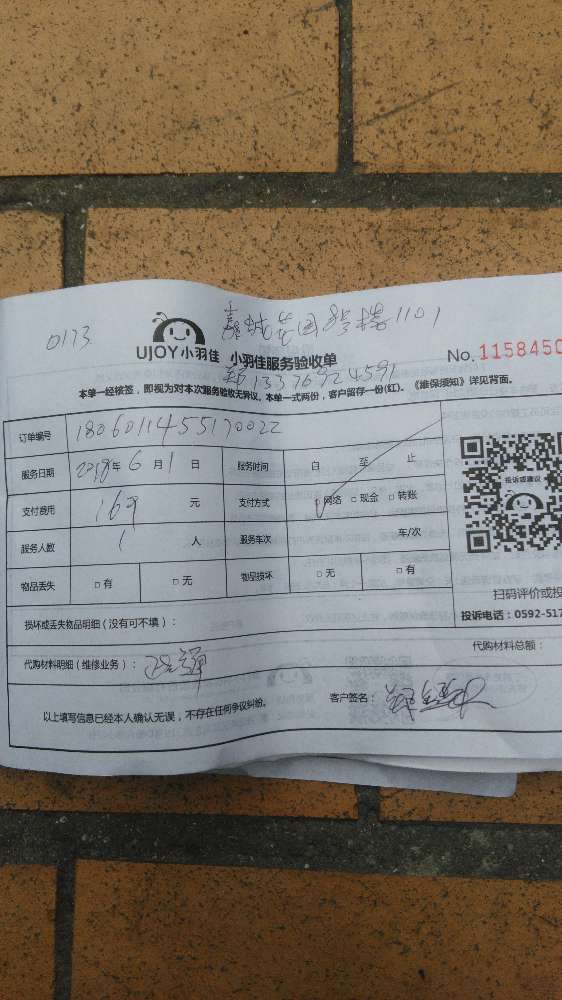 0173
1101
UJOY小羽佳 小羽佳服务验收单
No. 1158450
13376924591
本单一经核签,即视为对本次服务验收无异议。本单一式两份,客户留存一份(红)。《维保须知》详见背面。
订单编号 1806011455170022
服务日期 2018年 6 月 1 日 服务时间 自 至 止
支付费用 169 元 支付方式 ☑网络 □现金 □转账
投诉或建议
服务人数 1 人 服务车次 车/次
物品丢失 □有 □无 物品损坏 □无 □有
扫码评价或投
投诉电话:0592-517
损坏或丢失物品明细(没有可不填):
代购材料明细(维修业务): 代购材料总额:
以上填写信息已经本人确认无误,不存在任何争议纠纷。 客户签名: